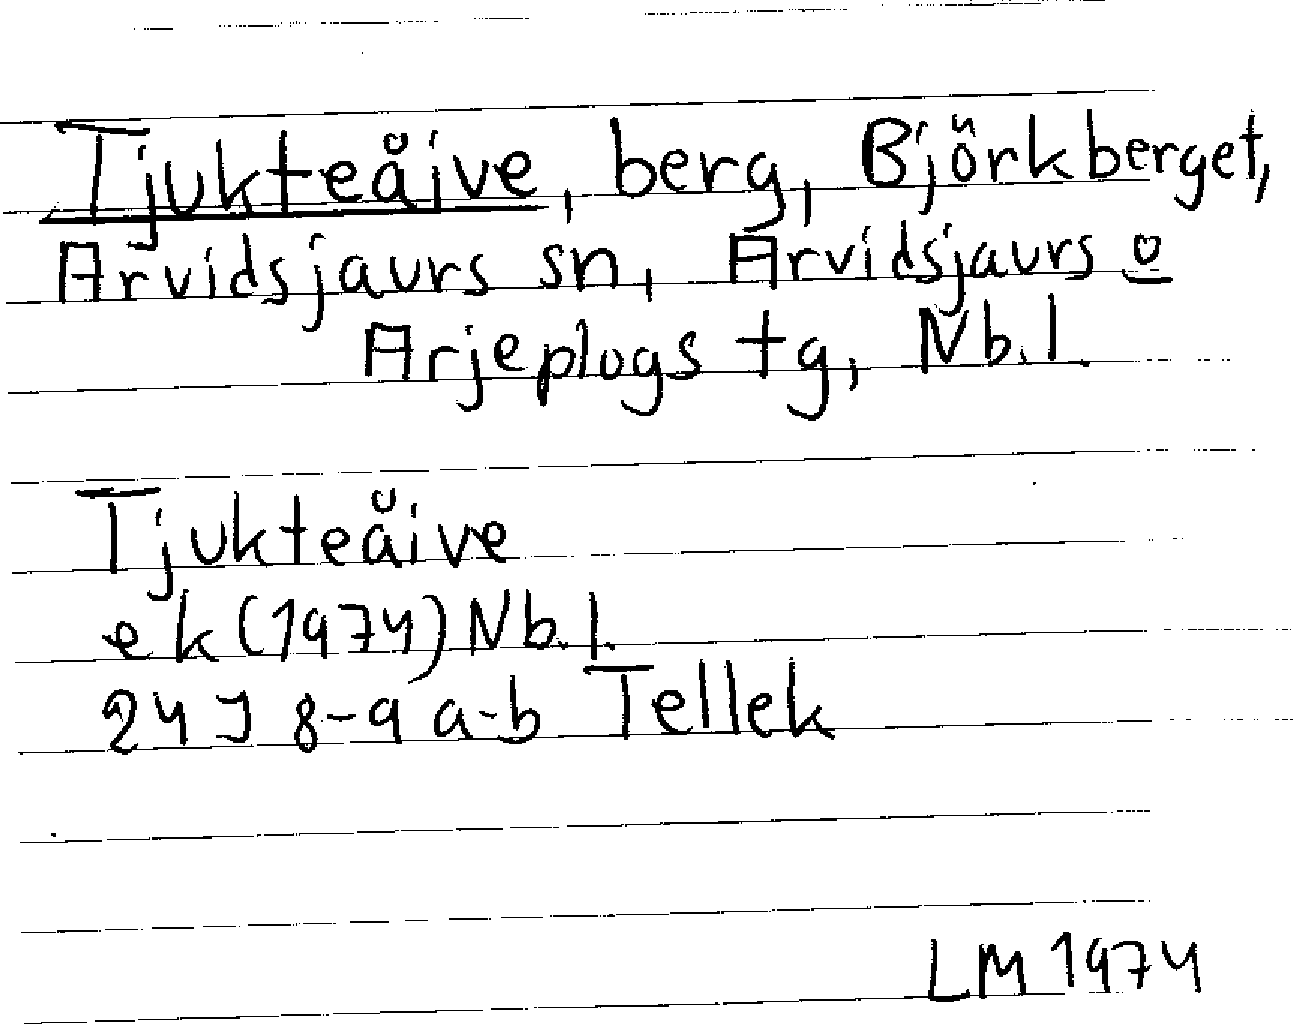 Tjukteåive, berg, Björkberget,
Arvidsjaurs sn, Arvidsjaurs o
Arjeplogs tg, Nb.l.
Tjukteåive
ek (1974) Nb.l.
24 J 8-9 a-b Tellek
LM 1974